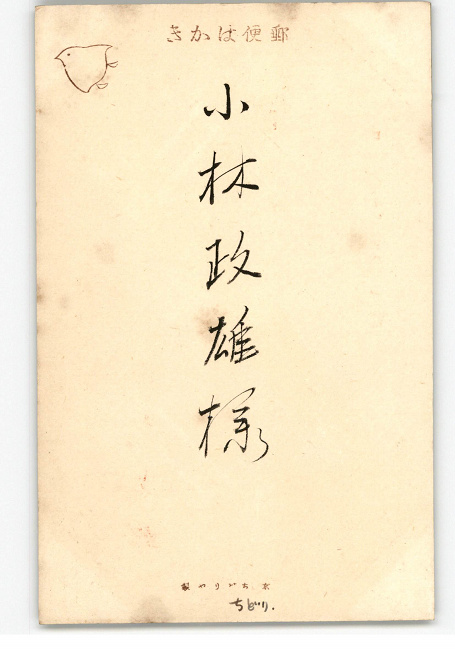 郵便はかき
小林政雄様
京ちどりや製
ちどり.